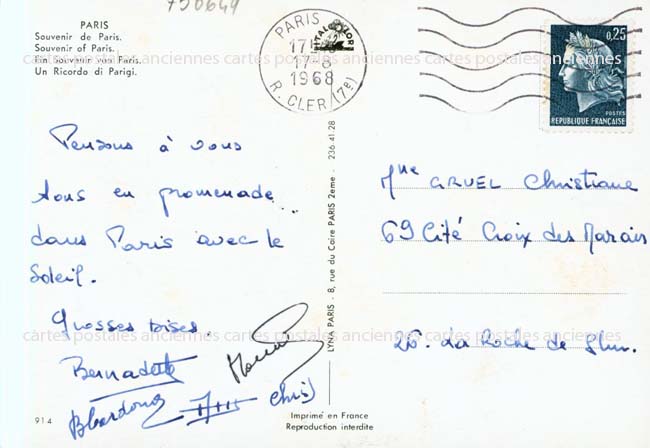 750649
PARIS
Souvenir de Paris.
Souvenir of Paris.
Ein Souvenir von Paris.
Un Ricordo di Parigi.
PARIS
17-8
1968
R. CLER (7e)
0,25
POSTES
REPUBLIQUE FRANÇAISE
cartes postales anciennes cartes postales anciennes cartes postales anciennes
Pensons à vous
tous en promenade
dans Paris avec le
Soleil.
Grosses bises.
Bernadette
Chris
LYNA PARIS - 8, rue du Caire PARIS 2eme - 236 41 28
Mme GRUEL Christiane
69 Cité Croix des Marais
26. La Roche de Glun.
cartes postales anciennes cartes postales anciennes cartes postales anciennes
914
Imprimé en France
Reproduction interdite